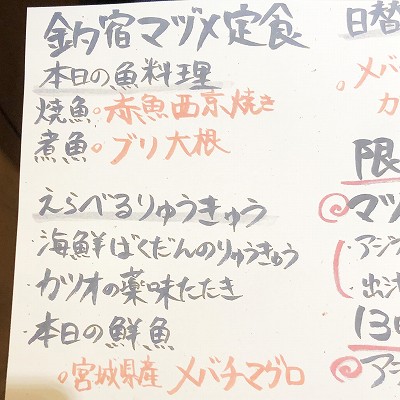 釣宿マヅメ定食
本日の魚料理
焼魚。赤魚西京焼き
煮魚。ブリ大根
えらべるりゅうきゅう
・海鮮ばくだんのりゅうきゅう
・カツオの薬味たたき
・本日の鮮魚
。宮城県産 メバチマグロ
日替
。メバ
カ
限
マヅ
・アジフ
・出汁
13時
アラ